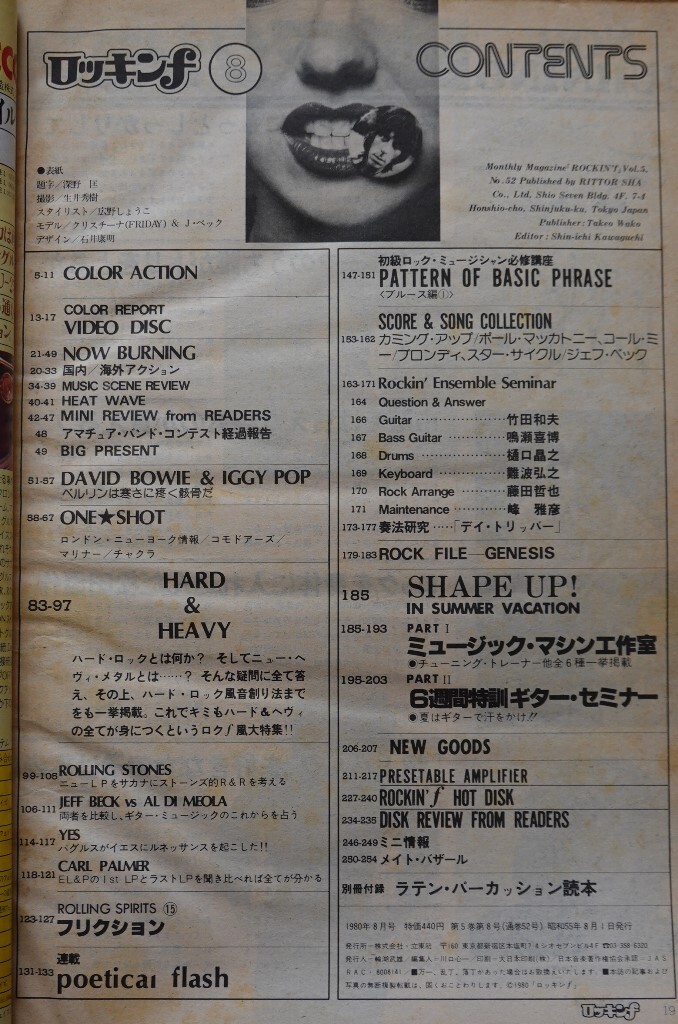 ロッキンf 8
CONTENTS
●表紙
題字／深野 匡
撮影／生井秀樹
スタイリスト／広野しょうこ
モデル／クリスチーナ(FRIDAY) & J・ベック
デザイン／石井康明
Monthly Magazine' ROCKIN'f, Vol.5,
No.52 Published by RITTOR SHA
Co., Ltd, Shio Seven Bldg. 4F. 7-4
Honshio-cho, Shinjuku-ku, Tokyo Japan
Publisher: Takeo Wako
Editor: Shin-ichi Kawaguchi
5-11 COLOR ACTION
13-17 COLOR REPORT
VIDEO DISC
21-49 NOW BURNING
20-33 国内／海外アクション
34-39 MUSIC SCENE REVIEW
40-41 HEAT WAVE
42-47 MINI REVIEW from READERS
48 アマチュア・バンド・コンテスト経過報告
49 BIG PRESENT
51-57 DAVID BOWIE & IGGY POP
ベルリンは寒さに疼く骸骨だ
58-67 ONE★SHOT
ロンドン・ニューヨーク情報／コモドアーズ／
マリナー／チャクラ
83-97 HARD
&
HEAVY
ハード・ロックとは何か？ そしてニュー・ヘ
ヴィ・メタルとは……？ そんな疑問に全て答
え、その上、ハード・ロック風音創り法まで
をも一挙掲載。これでキミもハード＆ヘヴィ
の全てが身につくというロクf風大特集!!
99-105 ROLLING STONES
ニューLPをサカナにストーンズ的R&Rを考える
106-111 JEFF BECK vs AL DI MEOLA
両者を比較し、ギター・ミュージックのこれからを占う
114-117 YES
バグルスがイエスにルネッサンスを起こした!!
118-121 CARL PALMER
EL&Pの1st LPとラストLPを聞き比べれば全てが分かる
123-127 ROLLING SPIRITS ⑮
フリクション
131-133 連載
poetical flash
147-151 初級ロック・ミュージシャン必修講座
PATTERN OF BASIC PHRASE
〈ブルース編①〉
SCORE & SONG COLLECTION
153-162 カミング・アップ／ポール・マッカートニー、コール・ミ
ー／ブロンディ、スター・サイクル／ジェフ・ベック
163-171 Rockin' Ensemble Seminar
164 Question & Answer
166 Guitar ………………… 竹田和夫
167 Bass Guitar …………… 鳴瀬喜博
168 Drums ………………… 樋口晶之
169 Keyboard …………… 難波弘之
170 Rock Arrange ……… 藤田哲也
171 Maintenance ………… 峰 雅彦
173-177 奏法研究……「デイ・トリッパー」
179-183 ROCK FILE—GENESIS
185 SHAPE UP!
IN SUMMER VACATION
185-193 PART I
ミュージック・マシン工作室
●チューニング・トレーナー他全6種一挙掲載
195-203 PART II
6週間特訓ギター・セミナー
●夏はギターで汗をかけ!!
206-207 NEW GOODS
211-217 PRESETABLE AMPLIFIER
227-240 ROCKIN'f HOT DISK
234-235 DISK REVIEW FROM READERS
246-249 ミニ情報
250-254 メイト・バザール
別冊付録 ラテン・パーカッション読本
1980年8月号 特価440円 第5巻第8号(通巻52号) 昭和55年8月1日発行
発行所―株式会社・立東社 〒160 東京都新宿区本塩町7-4シオセブンビル4F ☎03-358-6320
JAS
RAC.8008141 ■万一、乱丁、落丁があった場合はお取換えいたします。■本誌の記事および
写真の無断複製転載は、固くおことわりします。©1980「ロッキンf」
ロッキンf 19